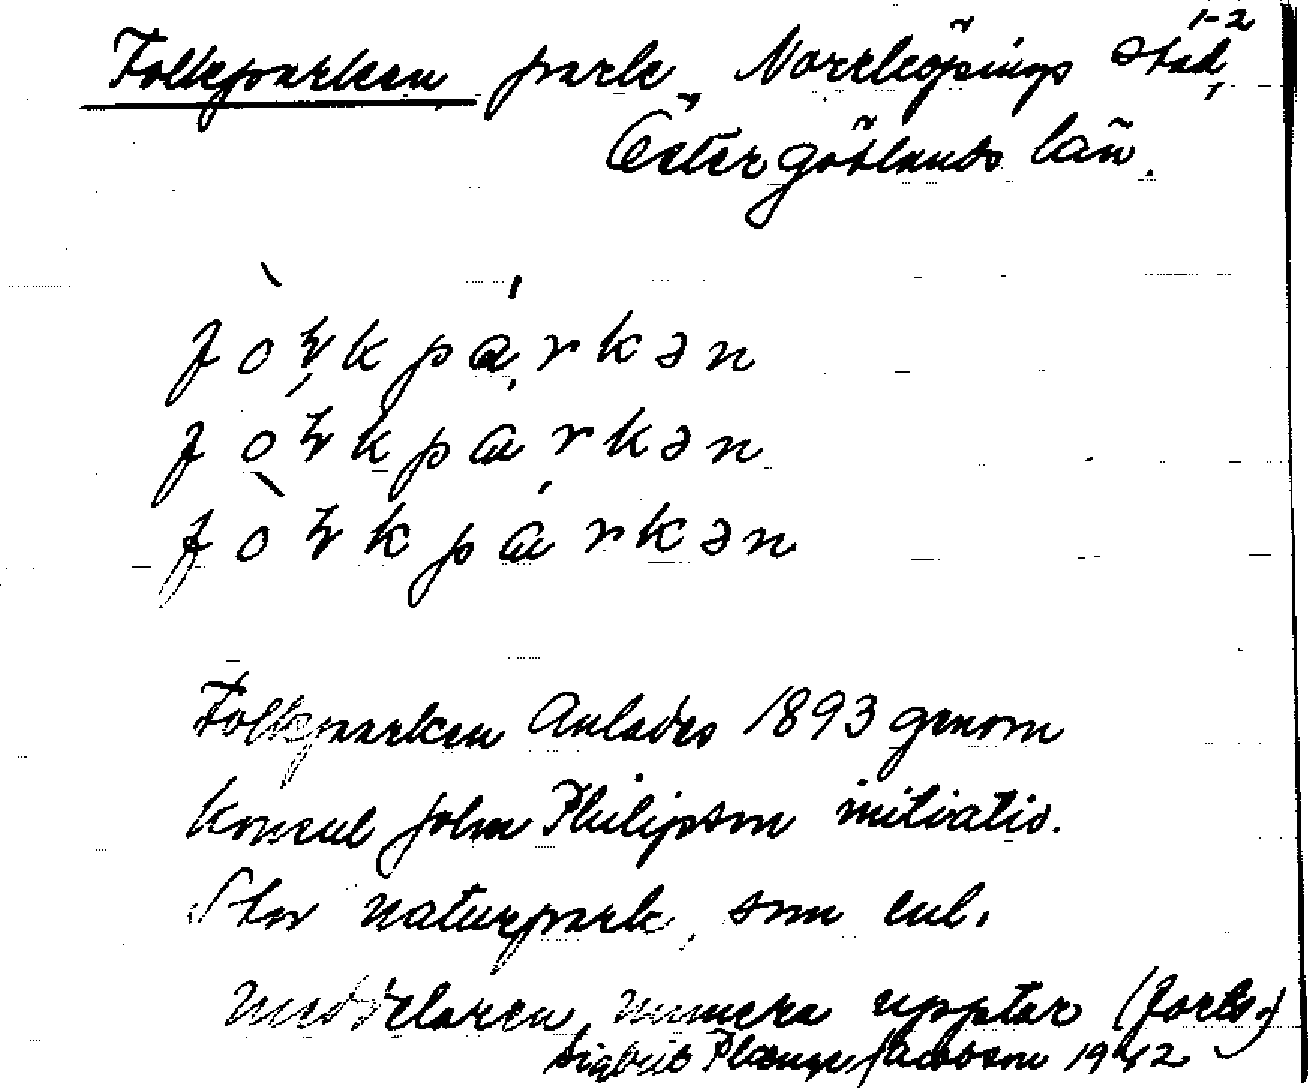 1-2
Folkparken park, Norrköpings stad,
Östergötlands län.
fòꞎkpárkən
foꞎkparkən
fòꞎkpárkən
Folkparken Anlades 1893 genom
Konsul John Philipson initiativ.
Stor naturpark, som enl.
meddelaren, numera upptar (forts.)
Sigbrit Plænge Jacobson 1942